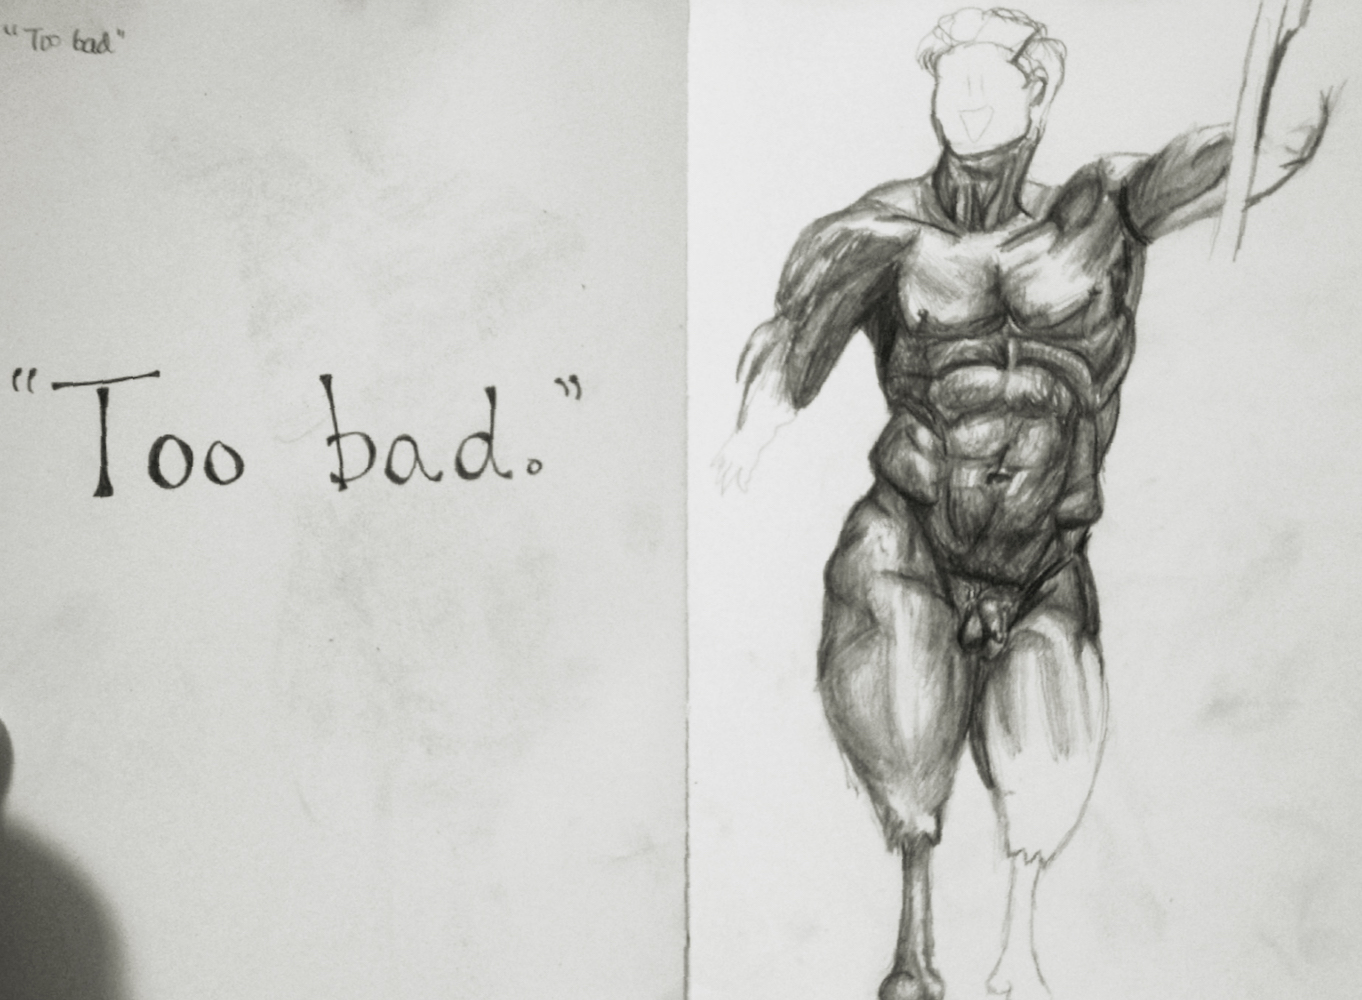 "Too bad"
"Too bad."